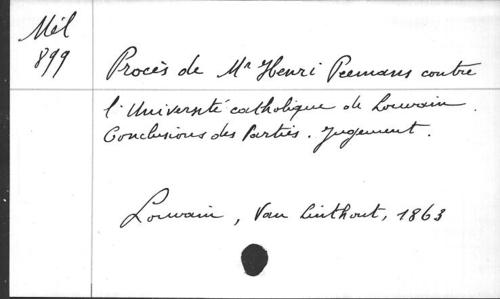 Mél
899
Procès de Mr Henri Peemans contre
l'Université catholique de Louvain.
Conclusions des Parties. Jugement.
Louvain, Van Linthout, 1863